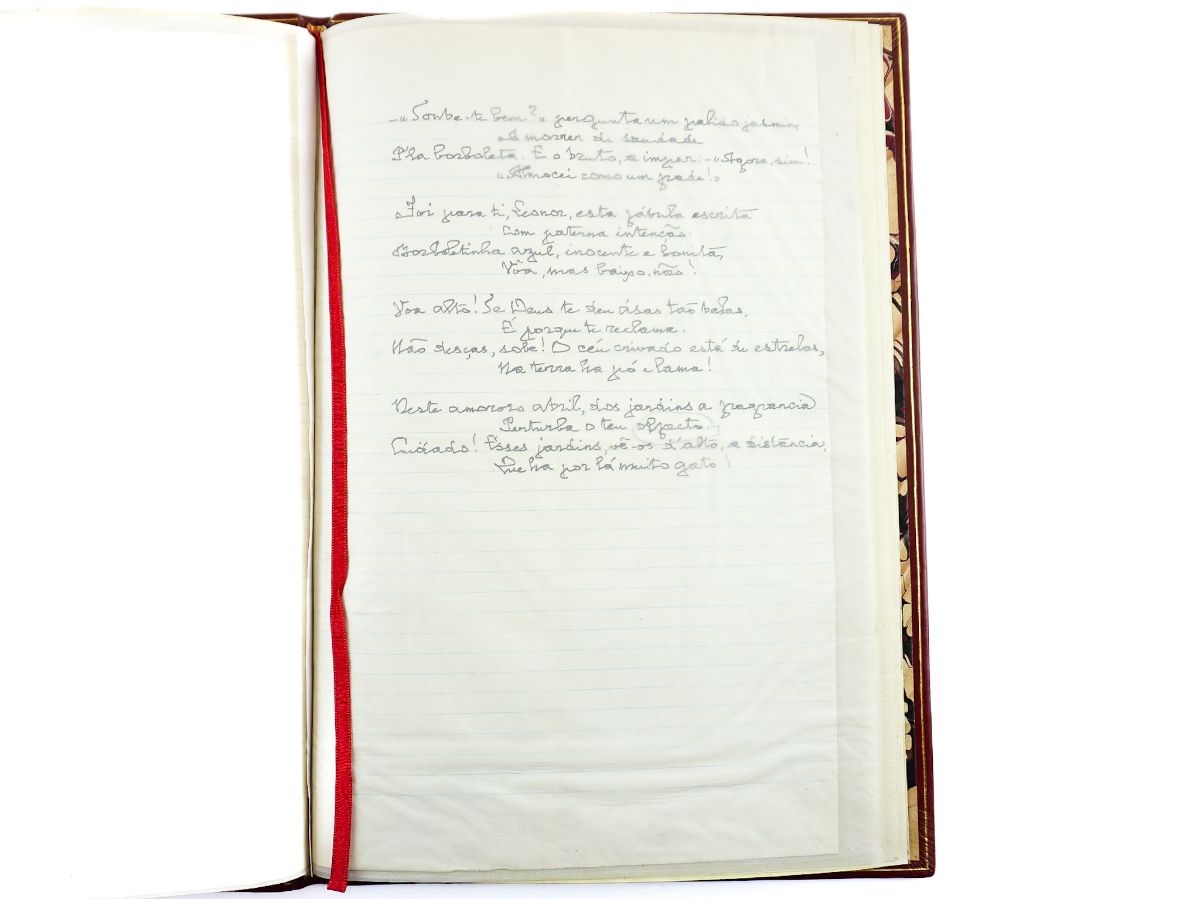 —«Soube-te bem?» pergunta um palido jasmim,
A morrer de saudade
P'la borboleta. E o bruto, a impar: —«Agora, sim!
«Almocei como um frade!»
Foi para ti, Leonor, esta fábula escrita
Com paterna intenção:
Borboletinha azul, inocente e bonita,
Vôa, mas baixo, não!
Voa alto! Se Deus te deu ásas tão belas,
É porque te reclama.
Não desças, sobe! O céu crivado está de estrelas,
Na terra ha pó e lama!
Neste amoroso abril, dos jardins a fragrancia
Perturba o teu olfacto...
Cuidado! Esses jardins, vê-os d'alto, a distância,
Que ha por lá muito gato!